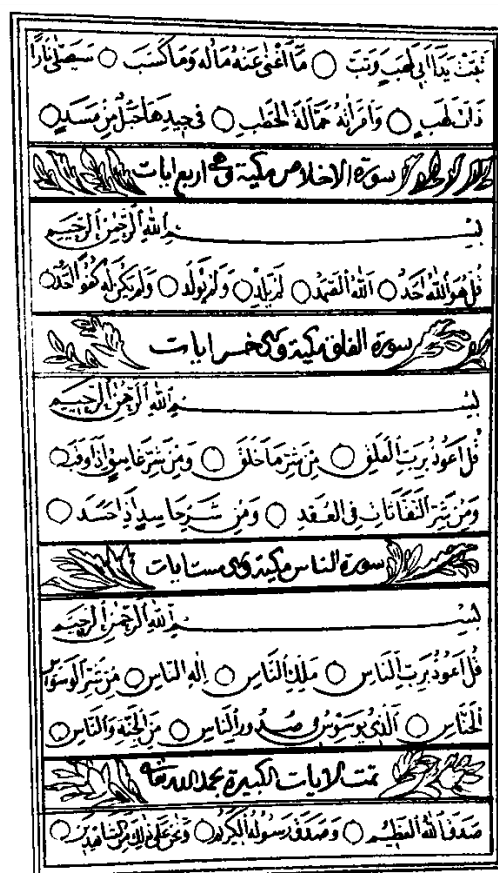 تَبَّتْ يَدَا أَبِي لَهَبٍ وَتَبَّ ○ مَا أَغْنَى عَنْهُ مَالُهُ وَمَا كَسَبَ ○ سَيَصْلَى نَارًا
ذَاتَ لَهَبٍ ○ وَامْرَأَتُهُ حَمَّالَةَ الْحَطَبِ ○ فِي جِيدِهَا حَبْلٌ مِنْ مَسَدٍ ○
سورة الاخلاص مكية وهى اربع ايات
بِسْمِ اللهِ الرَّحْمٰنِ الرَّحِيمِ
قُلْ هُوَ اللهُ اَحَدٌ ○ اَللهُ الصَّمَدُ ○ لَمْ يَلِدْ ○ وَلَمْ يُولَدْ ○ وَلَمْ يَكُنْ لَهُ كُفُوًا اَحَدٌ ○
سورة الفلق مكية وهى خمس ايات
بِسْمِ اللهِ الرَّحْمٰنِ الرَّحِيمِ
قُلْ اَعُوذُ بِرَبِّ الْفَلَقِ ○ مِنْ شَرِّ مَا خَلَقَ ○ وَمِنْ شَرِّ غَاسِقٍ اِذَا وَقَبَ ○
وَمِنْ شَرِّ النَّفَّاثَاتِ فِي الْعُقَدِ ○ وَمِنْ شَرِّ حَاسِدٍ اِذَا حَسَدَ ○
سورة الناس مكية وهى ست ايات
بِسْمِ اللهِ الرَّحْمٰنِ الرَّحِيمِ
قُلْ اَعُوذُ بِرَبِّ النَّاسِ ○ مَلِكِ النَّاسِ ○ اِلٰهِ النَّاسِ ○ مِنْ شَرِّ الْوَسْوَاسِ
الْخَنَّاسِ ○ اَلَّذِي يُوَسْوِسُ فِي صُدُورِ النَّاسِ ○ مِنَ الْجِنَّةِ وَالنَّاسِ ○
تمت الايات الكبيرة بحمد الله
صَدَقَ اللهُ الْعَظِيمُ ○ وَصَدَقَ رَسُولُهُ الْكَرِيمُ ○ وَنَحْنُ عَلَى ذٰلِكَ مِنَ الشَّاهِدِينَ ○